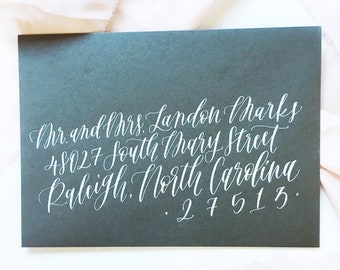 Mr. and Mrs. Landon Marks
48027 South Mary Street
Raleigh, North Carolina
· 27513 ·